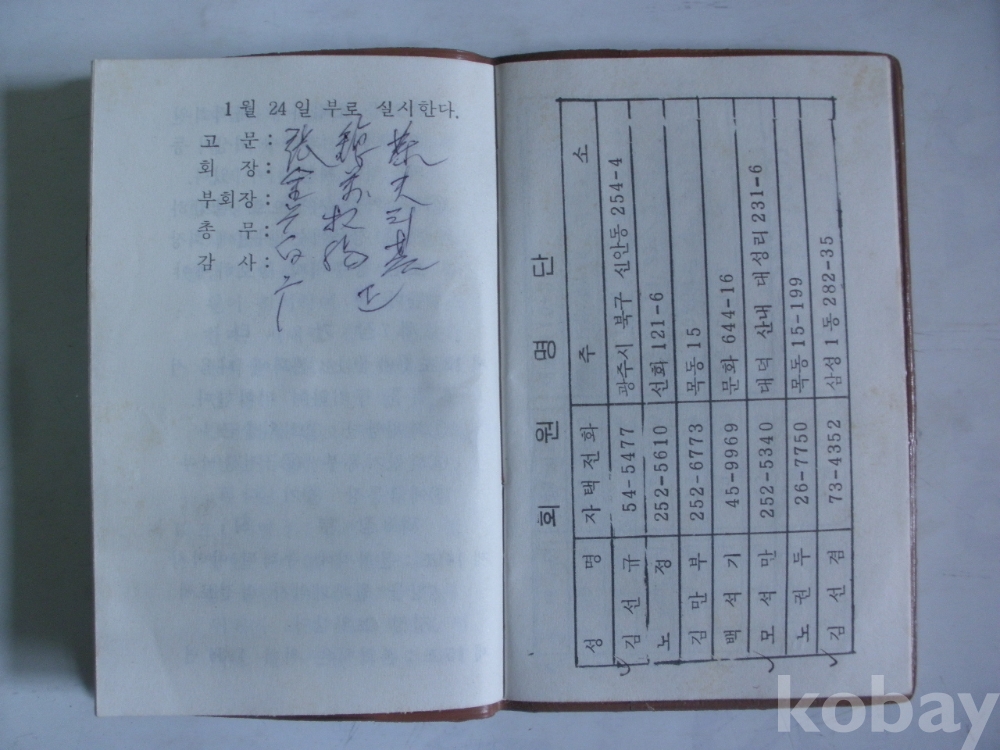 1월 24일 부로 실시한다.
고 문: 張
회 장: 金 万 大
부회장:
총 무: 白
감 사:
회 원 명 단
성 명 자택전화 주 소
김 선 규 54-5477 광주시 북구 신안동 254-4
노 정 252-5610 선화 121-6
김 만 부 252-6773 목동 15
백 석 기 45-9969 문화 644-16
모 석 만 252-5340 대덕 산내 대성리 231-6
노 권 두 26-7750 목동 15-199
김 선 겸 73-4352 삼성 1동 282-35
kobay